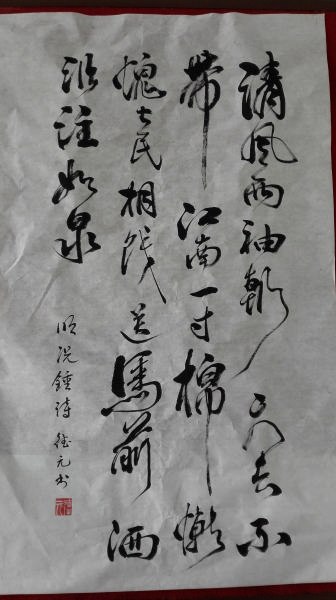 清風两袖朝天去不
帶江南一寸棉慚
愧士民相餞送馬前洒
淚注如泉
明况鍾詩 元书